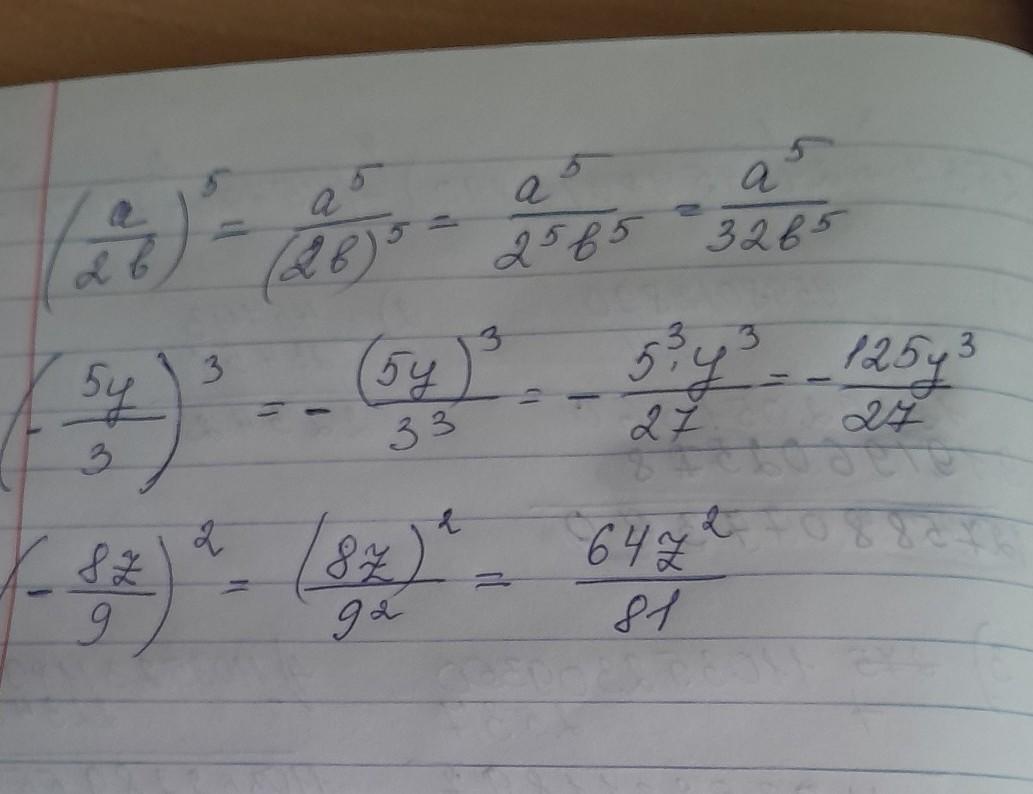 (a/2b)⁵ = a⁵/(2b)⁵ = a⁵/2⁵b⁵ = a⁵/32b⁵
(-5y/3)³ = -(5y)³/3³ = -5³·y³/27 = -125y³/27
(-8z/9)² = (8z)²/9² = 64z²/81